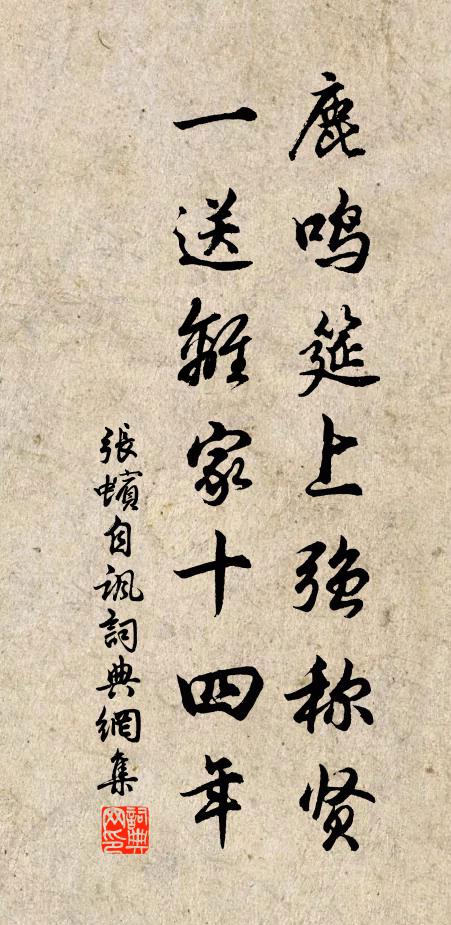 鹿鸣筵上强称贤
一送離家十四年
張蠙自諷詞典網集
詞典
网印